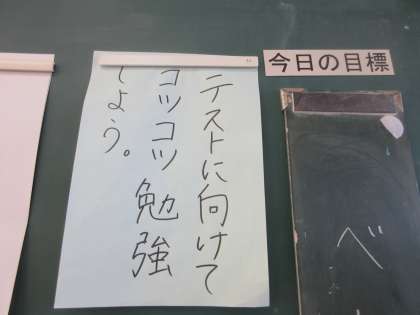 今日の目標
テストに向けて
コツコツ勉強
しよう。
べ